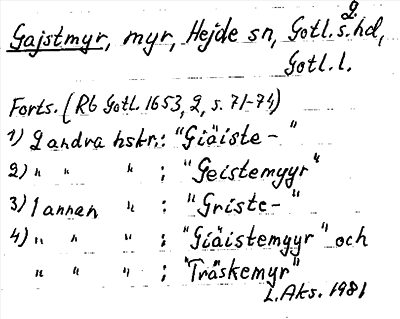 2.
Gajstmyr, myr, Hejde sn, Gotl. s. hd,
Gotl. l.
Forts. (Rb Gotl. 1653, 2, s. 71-74)
1) 2 andra hskr.: "Giäiste- "
2) " " " : "Geistemyyr"
3) 1 annan " : "Griste- "
4) " " " : "Giäistemyyr" och
" " " : "Träskemyr"
L. Aks. 1981